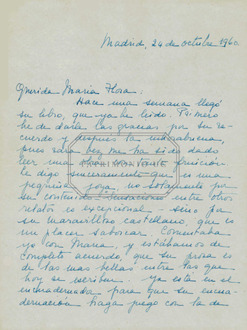 Madrid, 24 de octubre 1960.
Querida María Flora:
Hace una semana llegó
su libro, que ya he leído. Primero
he de darle las gracias por su re-
cuerdo y después la enhorabuena,
pues rara vez me ha sido dado
leer una con fruición
le digo sinceramente que es una
pequeña joya, no solamente por
su contenido entre otros
relatos es excepcional - sino por
su maravilloso castellano, que es
un placer saborear. Comentaba
yo con María y estábamos de
completo acuerdo, que su prosa es
de las más bellas entre las que
hoy se escriben. ya está en el
encuadernador para que su encua-
dernación haga pego con la de